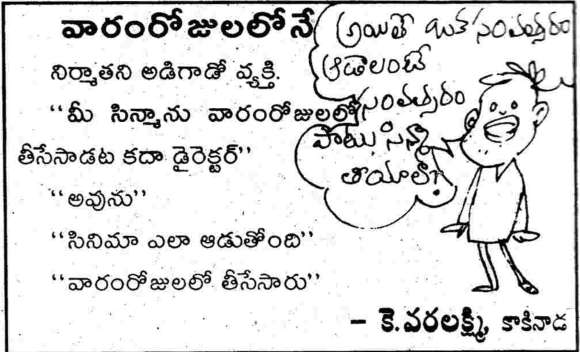 వారంరోజులలోనే
నిర్మాతని అడిగాడో వ్యక్తి.
“మీ సిన్మాను వారంరోజులలో
తీసేసాడట కదా డైరెక్టర్”
“అవును”
“సినిమా ఎలా ఆడుతోంది”
“వారంరోజులలో తీసేసారు”
– కె.వరలక్ష్మి, కాకినాడ
అయితే ఒక సంవత్సరం
ఆడాలంటే
సంవత్సరం
పాటు సిన్మా
తీయాలా?